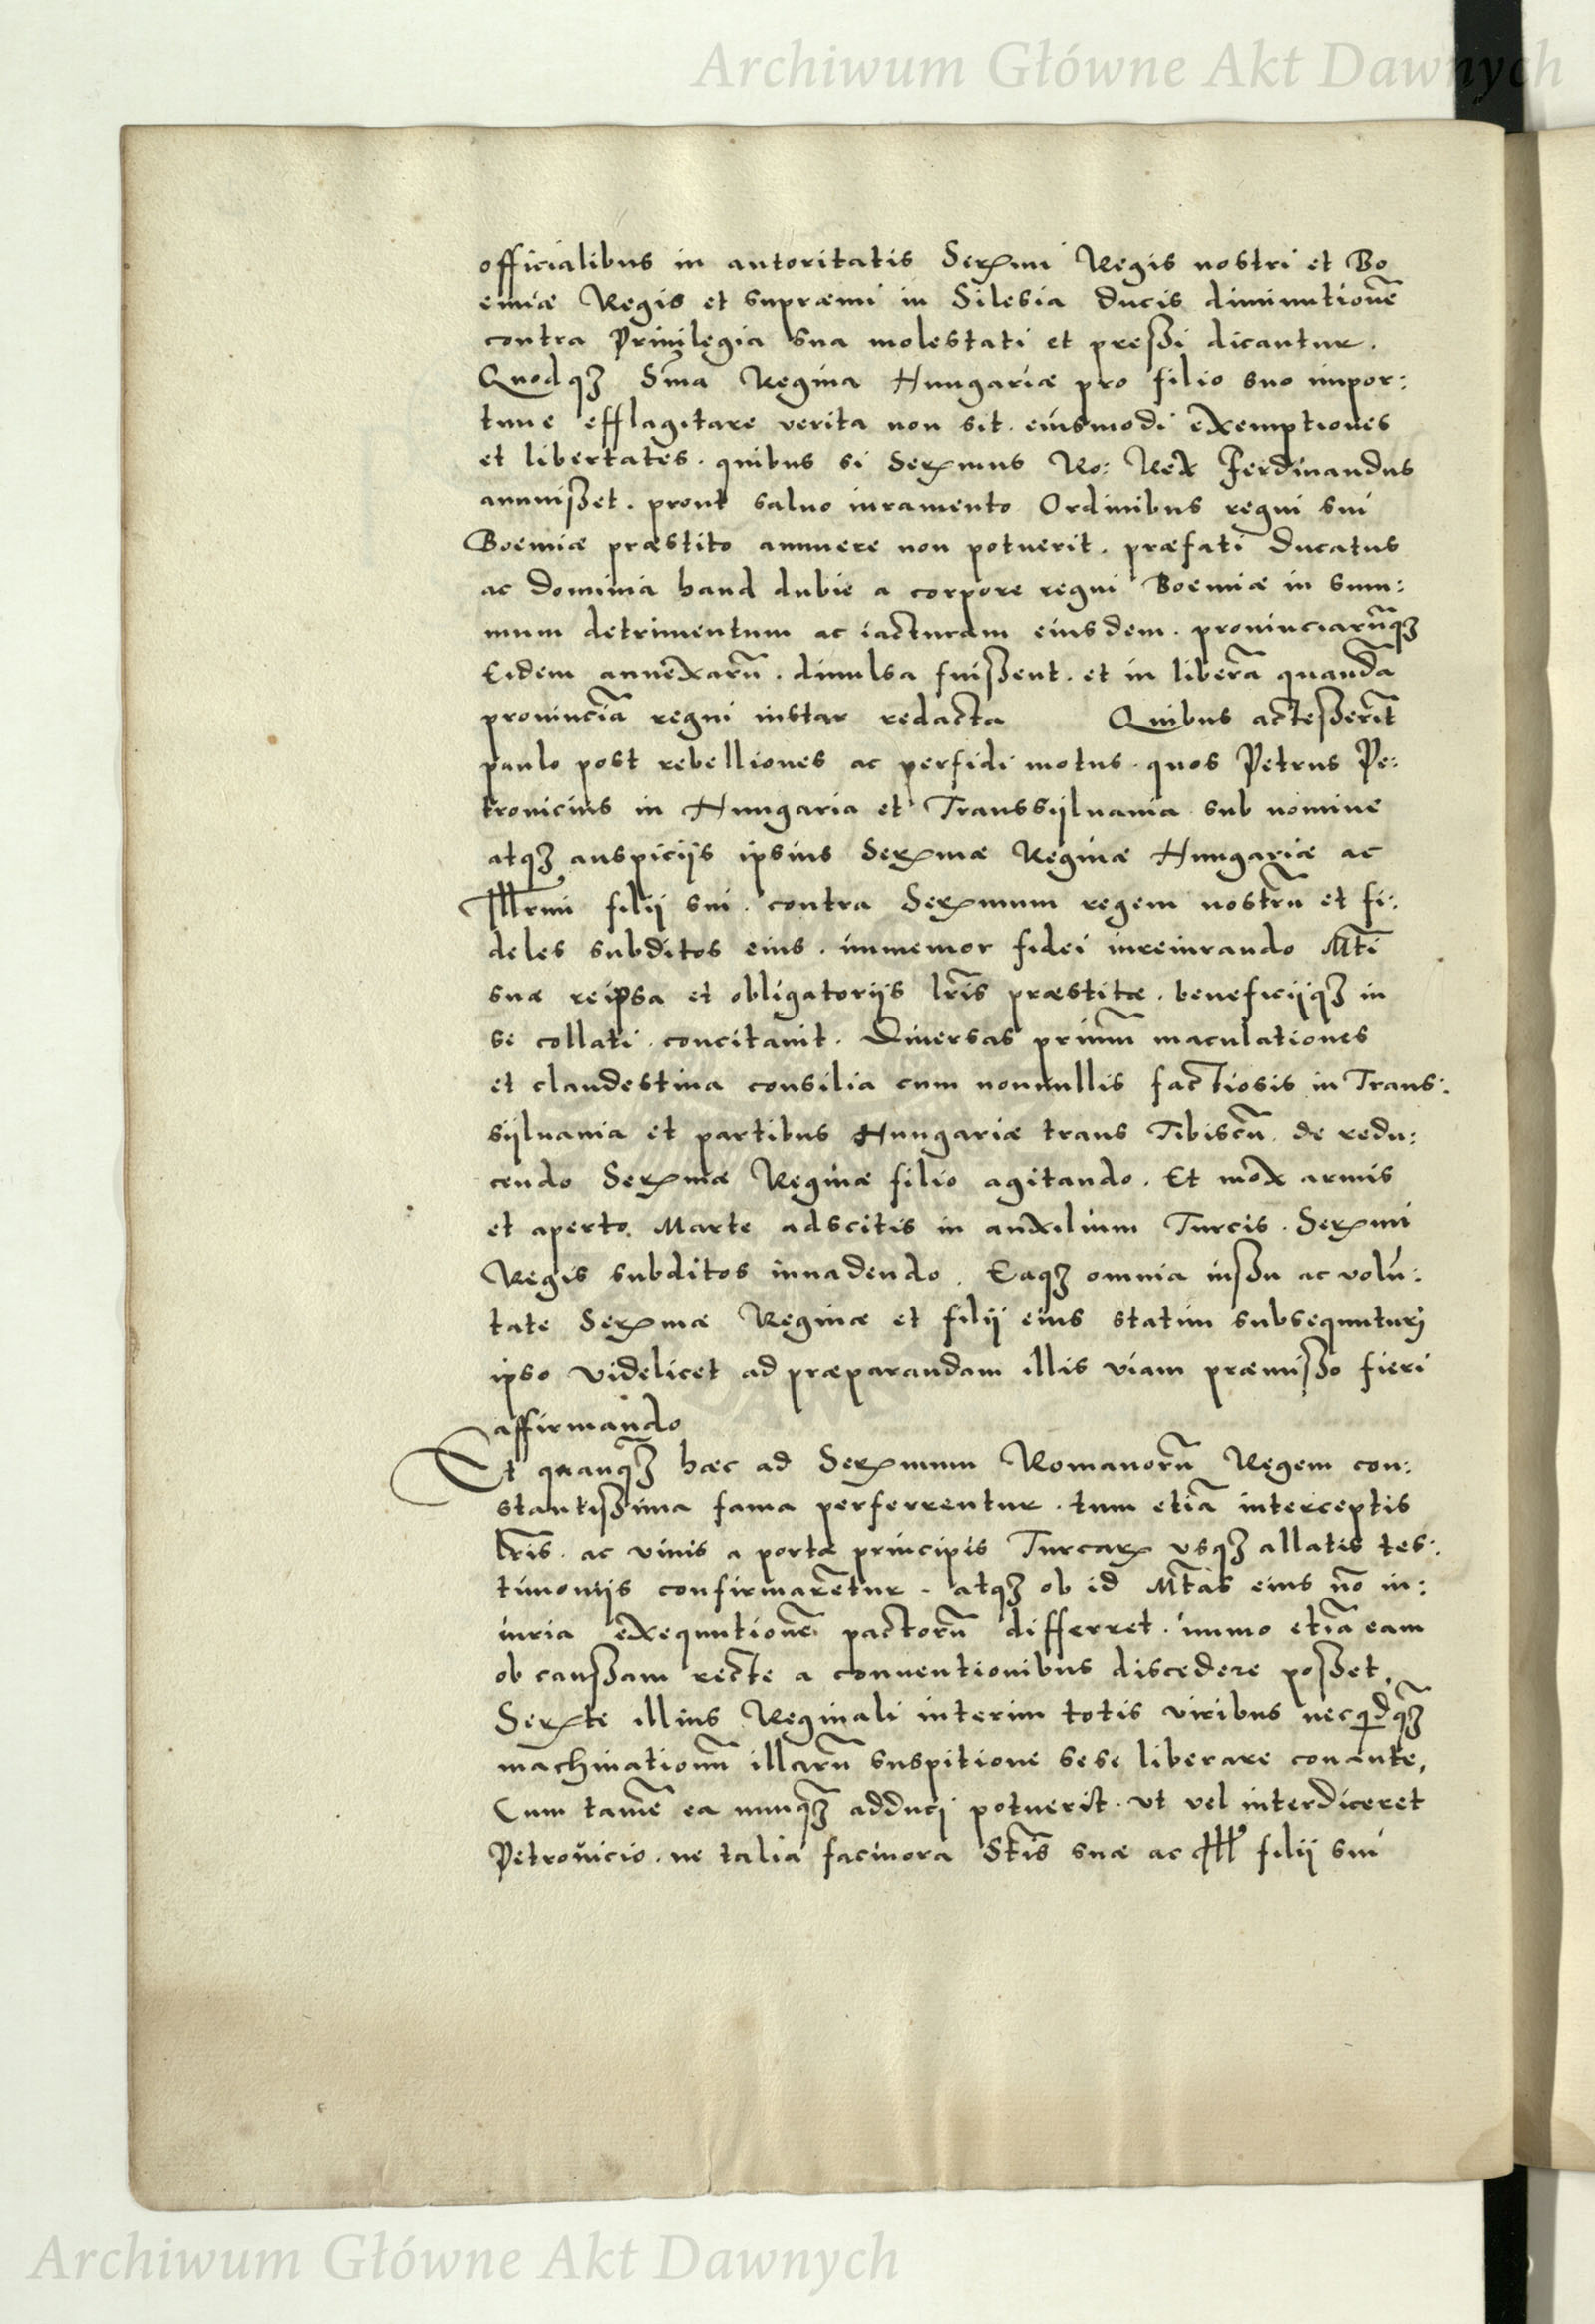 Archiwum Główne Akt Dawnych
officialibus in autoritatis Serᵐⁱ Regis nostri et Bo
emiæ Regis et supræmi in Silesia Ducis diminutionē
contra Priuilegia sua molestati et preßi dicantur.
Quodqȝ S̄ma Regina Hungariæ pro filio suo impor:
tune efflagitare verita non sit. eiusmodi exemptiones
et libertates. quibus si Serꝫmus Ro: Rex Ferdinandus
annuißet. prout saluo iuramento Ordinibus regni sui
Boemiæ præstito annuere non potuerit. præfati Ducatus
ac Dominia haud dubie a corpore regni Boemiæ in sum:
mum detrimentum ac iacturam eiusdem. prouinciarūqȝ
Eidem annexarū. diuulsa fuißent. et in liberā quandā
prouinciā regni instar redacta Quibus acceßerīt
paulo post rebelliones ac perfidi motus. quos Petrus Pe:
trouicius in Hungaria et Transsyluania sub nomine
atqȝ auspicijs ipsius Serꝫmæ Reginæ Hungariæ ac
Illr̄mi filij sui. contra Serꝫmum regem nostrū et fi:
deles subditos eius. immemor fidei iureiurando M̄ti
suæ reipsa et obligatorijs lr̄is præstitæ. beneficijqȝ in
se collati. concitauit. Diuersas primū maculationes
et clandestina consilia cum nonnullis factiosis in Trans:
syluania et partibus Hungariæ trans Tibiscū. de redu:
cendo Serꝫmæ Reginæ filio agitando. Et mox armis
et aperto Marte adscitis in auxilium Turcis. Serꝫmi
Regis subditos inuadendo. Eaqȝ omnia iußu ac volū:
tate Serꝫmæ Reginæ et filij eius statim subsequuturi
ipso videlicet ad præparandam illis viam præmißo fieri
affirmando
Et quanqȝ̄ hæc ad Serꝫmum Romanorū Regem con:
stantißima fama perferrentur. tum etiā interceptis
lr̄is. ac viuis a porta principis Turcarꝫ vsqȝ allatis tes:
timonijs confirmarētur. atqȝ ob id M̄tas eius nō in:
iuria exequutionē pactorū differret. immo etiā eam
ob caußam recte a conuentionibus discedere poßet.
Serꝫte illius Reginali interim totis viribus necqȝ̄
machinationū illarū suspitione sese liberare conante,
Cum tamē ea nunqȝ̄ adduci potuerit. vt vel interdiceret
Petrouicio. ne talia facinora S̄tis suæ ac Illʳ filij sui
Archiwum Główne Akt Dawnych